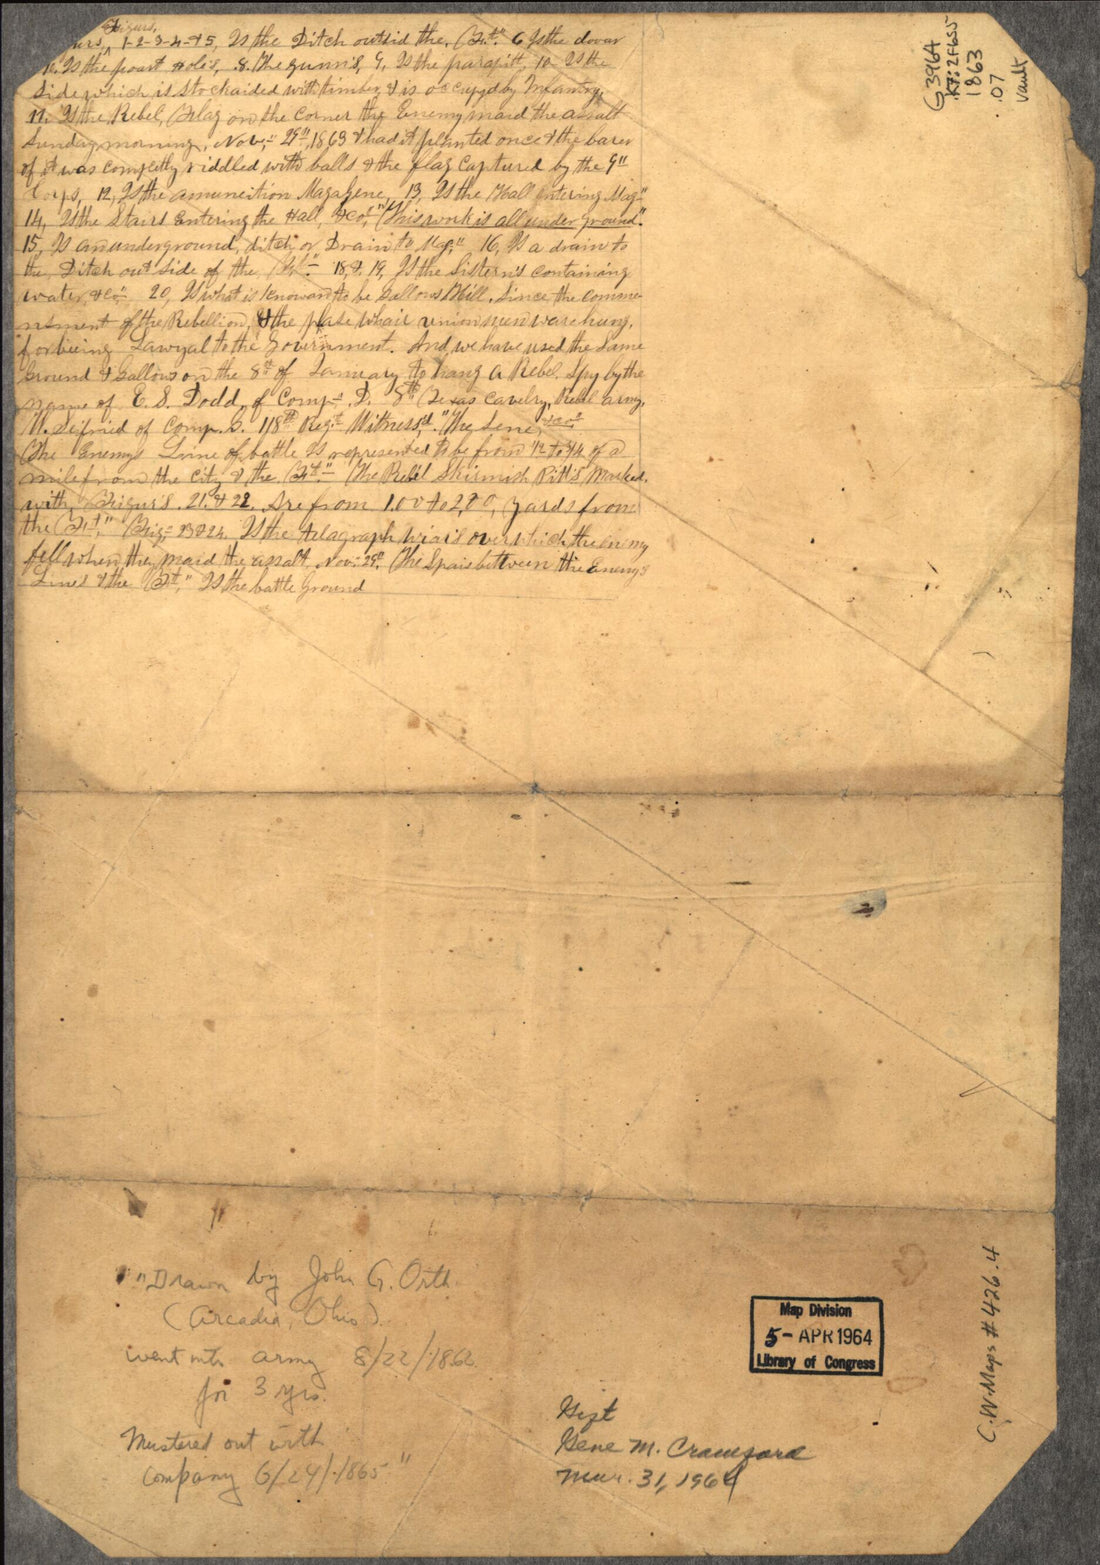 Feigurs,
urs, ^ 1-2-3-4-&5, Is the Ditch outsid the, Ft." 6 Is the dooar
Is the poart holes, 8. The gunns, 9, Is the parapitt, 10 Is the
Side which is Stockaided with timber, & is occupyd by Infantry,
11. Is the Rebel, Flag on the Corner the Enemy maid the asalt
Sunday morning, Nov,= 29th, 1863 & had it planted once & the barer
of it was complettly riddled with balls & the flag Captured by the 9"
Corps, 12, Is the amunetion Magazene, 13, Is the Hall entering Mag"
14, Is the Stairs Entering the Hall, &co," "This work is all under ground".
15, Is an underground, ditch, or Drain to Mag," 16, Is a drain to
the Ditch out Side of the Ft." 18, & 19, Is the Sistern's Containing
water, &co," 20, Is what is knowan to be Gallows Hill, Since the comme-
nsment of the Rebellion, & the plase whair union men ware hung,
for being Lawyal to the Goverinment. And we have used the Same
Ground & Gallows on the 8th of January to hang a Rebel Spy by the
name of E. S. Dodd, of Comp= D. 8th Texas Cavelry, Rebel army.
W. Seifried of Comp. 118th Reg.t Witness,d "The Sene, &co"
The Enemys Linne of battle Is represented to be from 1/2 to 3/4 of a
mile from the City & the Ft." The Rebel Skirmish Pitt's Marked,
with, Feigur's 21. & 22, Are from 100 to 200, yards from
the Ft," Feig= 23 & 24, Is the telagraph wiais over which the enimy
fell when they maid the asalt, Nov: 29th The Spais between the Enemys
Lines & the Ft," Is the battle Ground
G3964
.K7:2F655
1863
.07
Vault
"Drawn by John G. Orth
(Arcadia, Ohio).
went into army 8/22/1862
for 3 yrs.
Mustered out with
company 6/24/1865"
Map Division
5- APR 1964
Library of Congress
Gift
Gene M. Crawford
Mar. 31, 1964
C.W. Maps #426.4